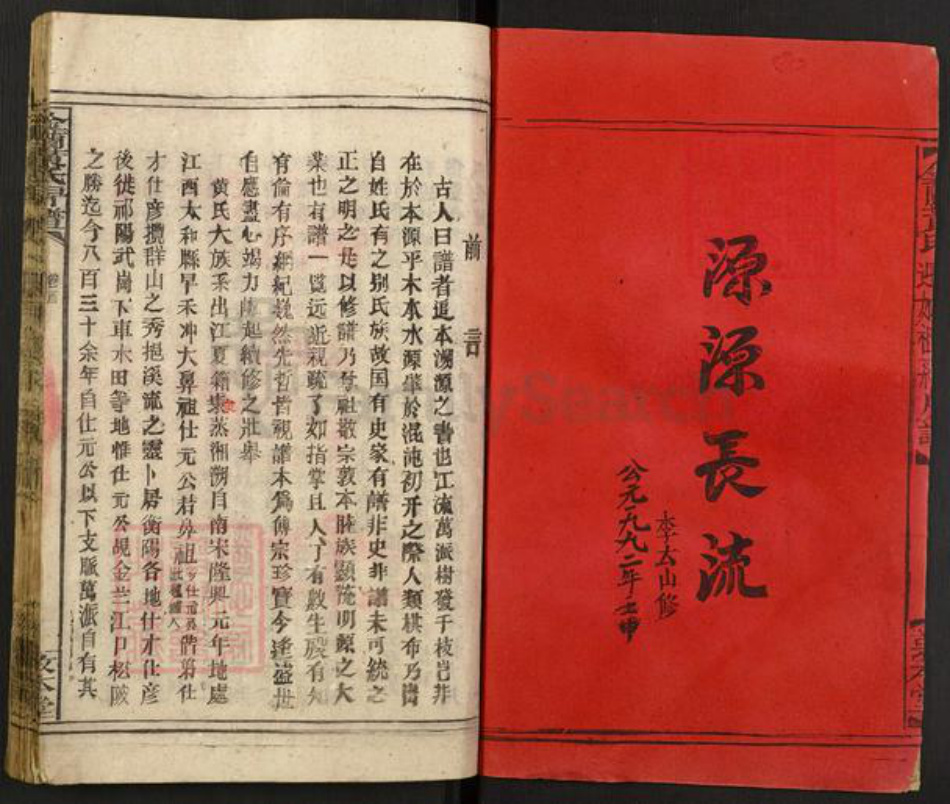 源源長流
李太山修
公元一九九二年壬申
前言
古人曰譜者追本溯源之書也江流萬派樹發千枝豈非
在於本源乎木本水源肇於混沌初开之際人類棋布乃崗
自姓氏有之别氏族故国有史家有譜非史非譜未可統之
正之明之是以修譜乃尊祖敬宗敦本睦族顯流明源之大
業也有譜一覧远近親疏了如指掌且人丁有數生殁有知
有倫有序綱紀巍然先哲皆視譜本為傳宗珍寶今逢盛世
自應盡心竭力起續修之壯舉
黄氏大族系出江夏籍蒸湘溯自南宋隆興元年地處
江西太和縣早禾冲大鼻祖仕元公君弟祖仕元弟階弟仕
才仕彦攬群山之秀挹溪流之靈卜居衡陽各地仕才仕彦
後徙祁陽武崗下車木田等地惟仕元公覘金兰江口松陂
之勝迄今八百三十余年自仕元公以下支脈萬派自有其
敦本堂
FamilySearch